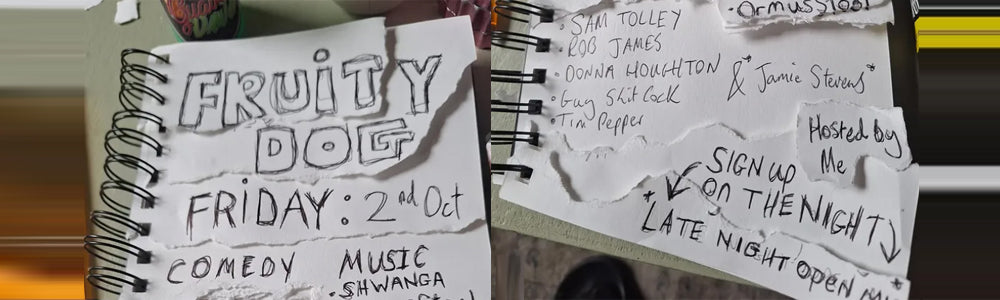 FRUITY
DOG
FRIDAY: 2nd Oct
COMEDY MUSIC
· SHWANGA
· SAM TOLLEY
· ROB JAMES
· DONNA HOUGHTON & *Jamie Stevens*
· Guy Shit Cock
· Tim Pepper
Hosted by
Me
SIGN UP
ON THE NIGHT
*LATE NIGHT OPEN